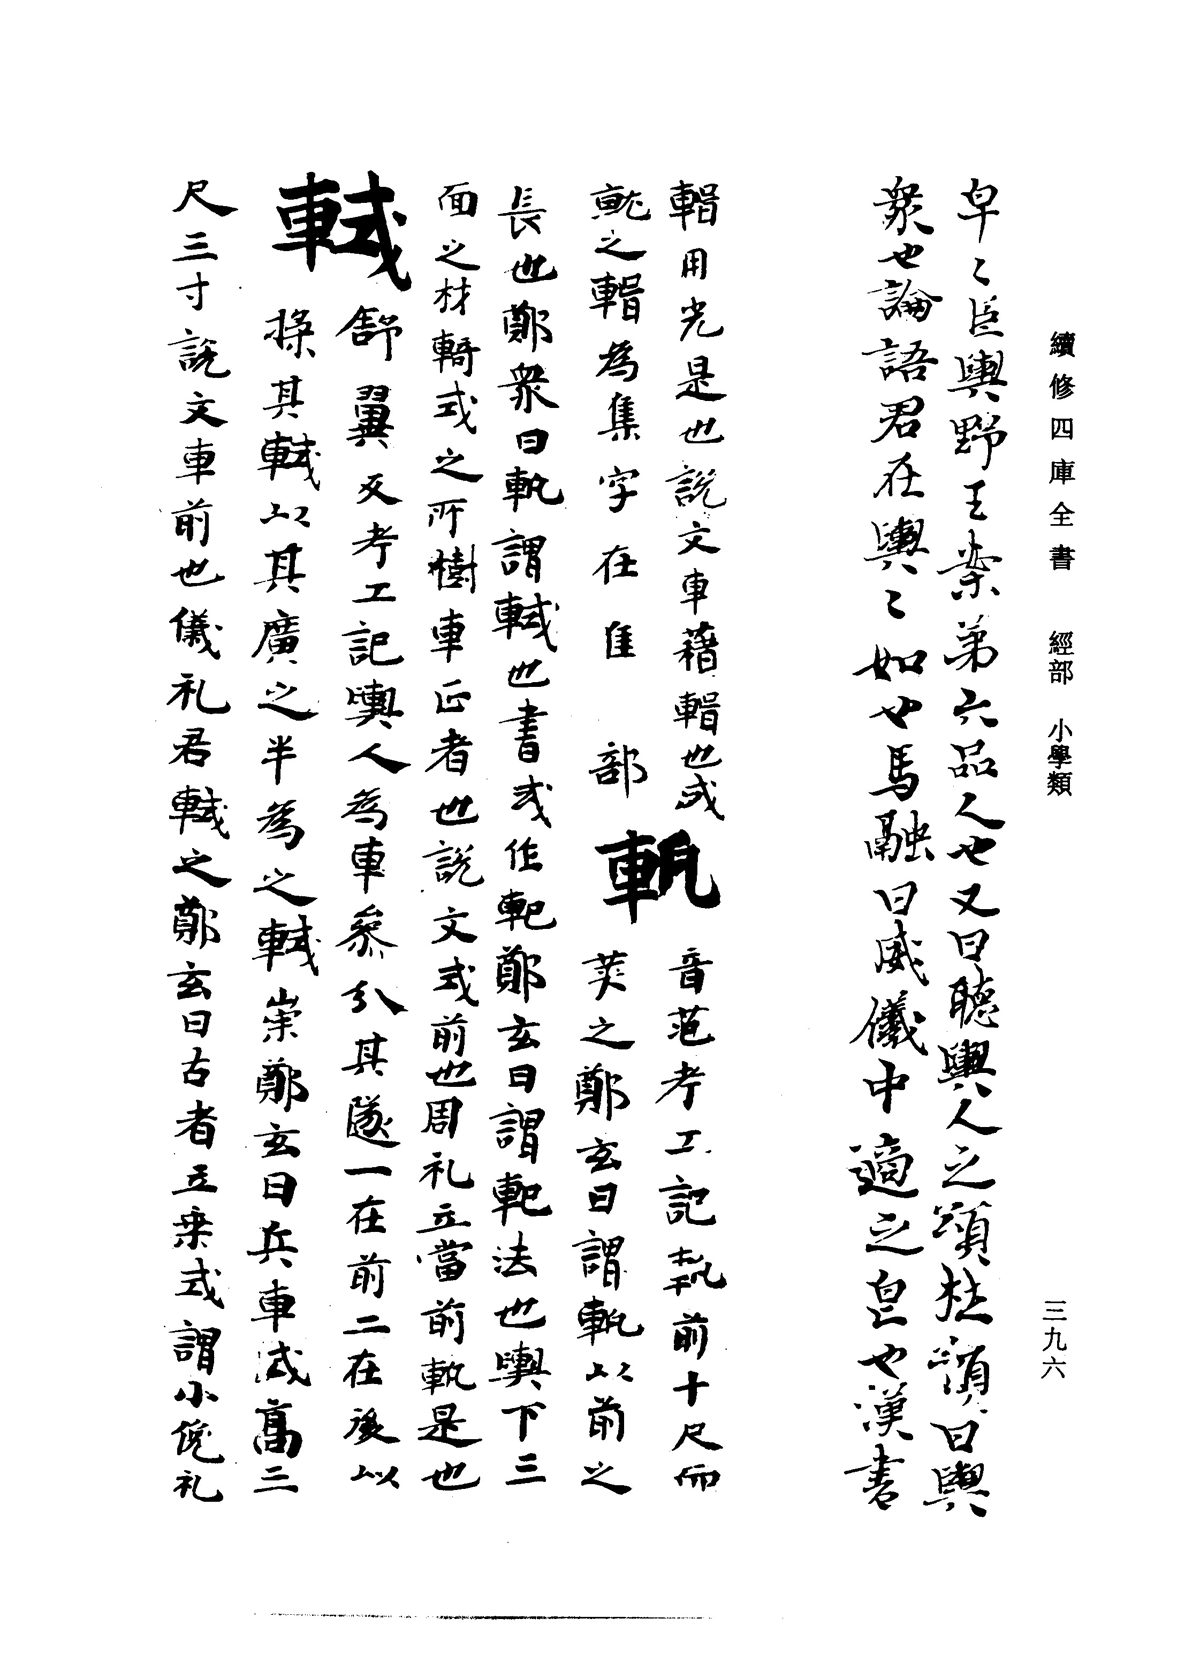 續修四庫全書 經部 小學類
三九六
皁〻臣輿野王案第六品人也又曰聽輿人之頌杜預曰輿
衆也論語君在輿〻如也馬融曰威儀中適之皃也漢書
輯用光是也說文車藉輯也或
㪇之輯為集字在隹部
軓
音范考工記軓前十尺而
䇲之鄭玄曰謂軓以前之
長也鄭衆曰軓謂軾也書或作軋鄭玄曰謂軋法也輿下三
面之材輢式之所樹車正者也說文式前也周礼立當前軓是也
軾
舒翼反考工記輿人為車參分其隧一在前二在後以
揉其軾以其廣之半為之軾崇鄭玄曰兵車式高三
尺三寸說文車前也儀礼君軾之鄭玄曰古者立乘式謂小俛礼